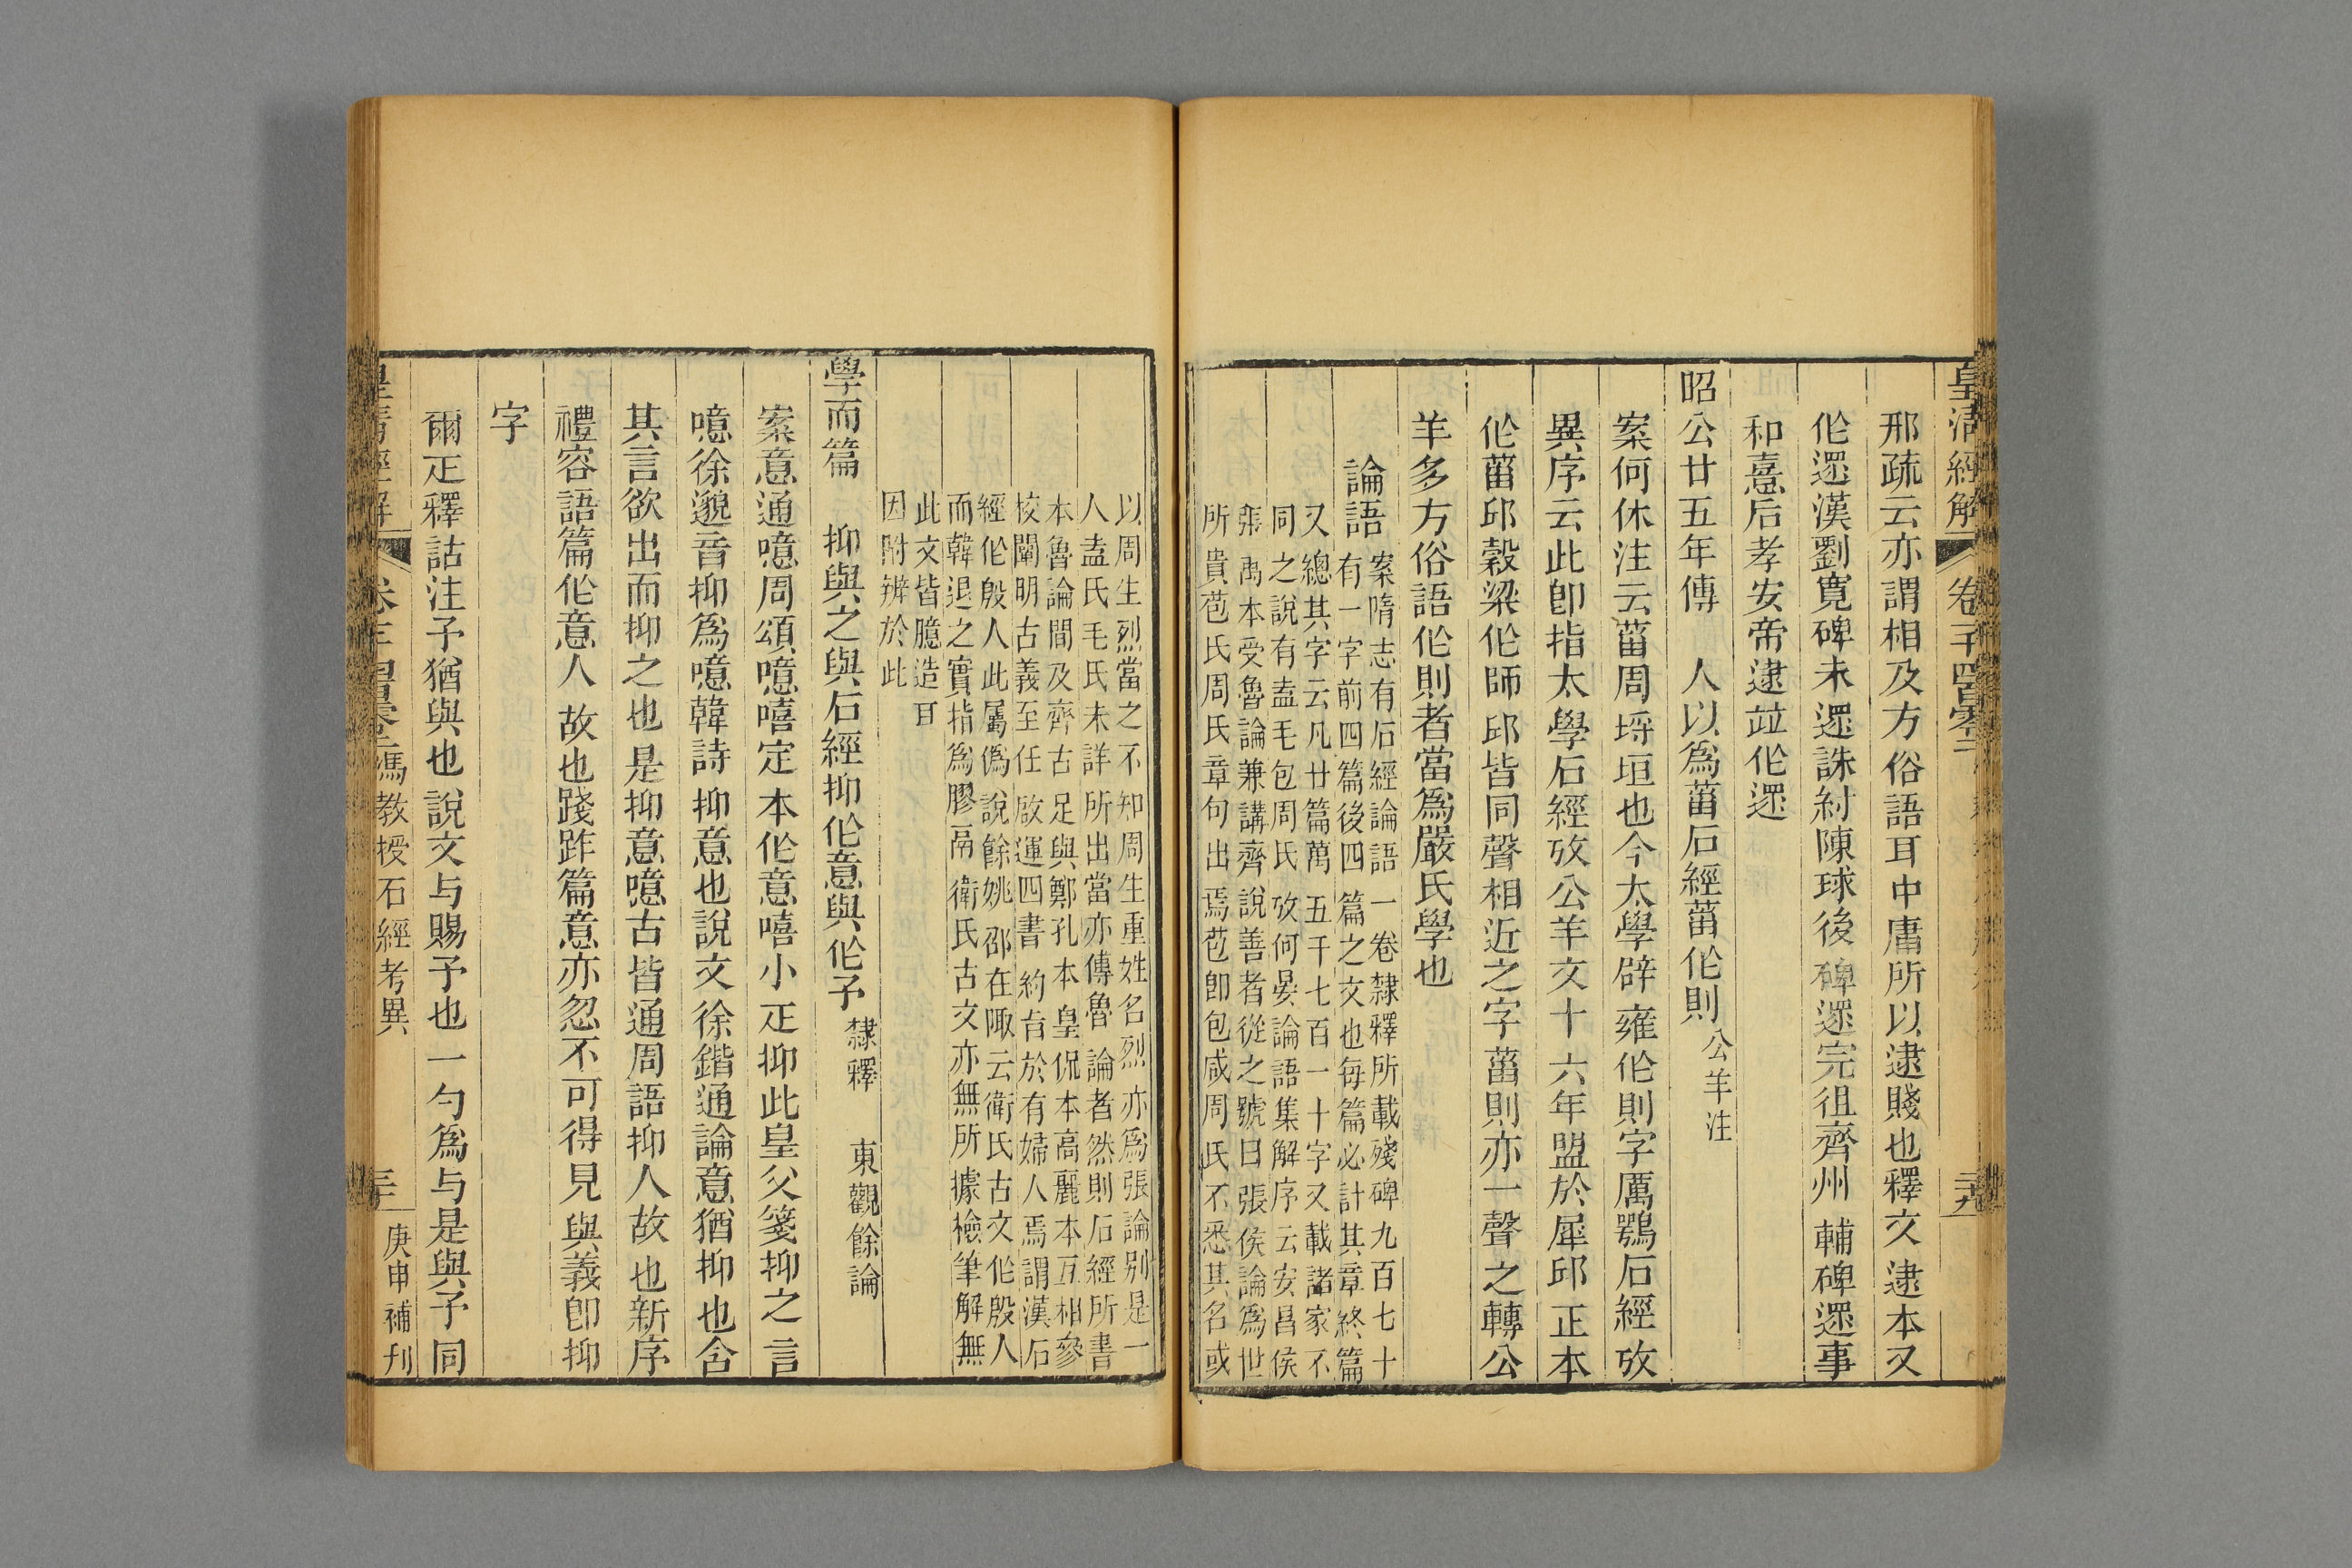 皇清經解 卷千四百零二
邢疏云亦謂相及方俗語耳中庸所以逮賤也釋文逮本又
作遝漢劉寬碑未遝誅討陳球後碑遝完徂齊州輔碑遝事
和熹后孝安帝逮竝作遝
昭公廿五年傳 人以爲菑石經菑作則公羊注
案何休注云菑周埓垣也今太學辟雍作則字厲鶚石經攷
異序云此卽指太學石經攷公羊文十六年盟於犀邱正本
作菑邱穀梁作師邱皆同聲相近之字菑則亦一聲之轉公
羊多方俗語作則者當爲嚴氏學也
論語
案隋志有石經論語一卷隸釋所載殘碑九百七十
有一字前四篇後四篇之文也每篇必計其章終篇
又總其字云凡廿篇萬五千七百一十字又載諸家不
同之說有盍毛包周氏攷何晏論語集解序云安昌侯
張禹本受魯論兼講齊說善者從之號曰張侯論爲世
所貴苞氏周氏章句出焉苞卽包咸周氏不悉其名或
以周生烈當之不知周生重姓名烈亦爲張論別是一
人盍氏毛氏未詳所出當亦傳魯論者然則石經所書
本魯論間及齊古足與鄭孔本皇侃本高麗本互相參
校闡明古義至任啟運四書約旨於有婦人焉謂漢石
經作殷人此屬僞說餘姚邵在陬云衛氏古文作殷人
而韓退之實指爲膠鬲衛氏古文亦無所據檢筆解無
此文皆臆造耳
因附辨於此
學而篇 抑與之與石經抑作意與作予隸釋 東觀餘論
案意通噫周頌噫嘻定本作意嘻小正抑此皇父箋抑之言
噫徐邈音抑爲噫韓詩抑意也說文徐鍇通論意猶抑也含
其言欲出而抑之也是抑意噫古皆通周語抑人故也新序
禮容語篇作意人故也踐阼篇意亦忽不可得見與義卽抑
字
爾疋釋詁注予猶與也說文与賜予也一勺爲与是與予同
皇清經解 卷千四百零二 馮教授石經考異 三十 庚申補刊